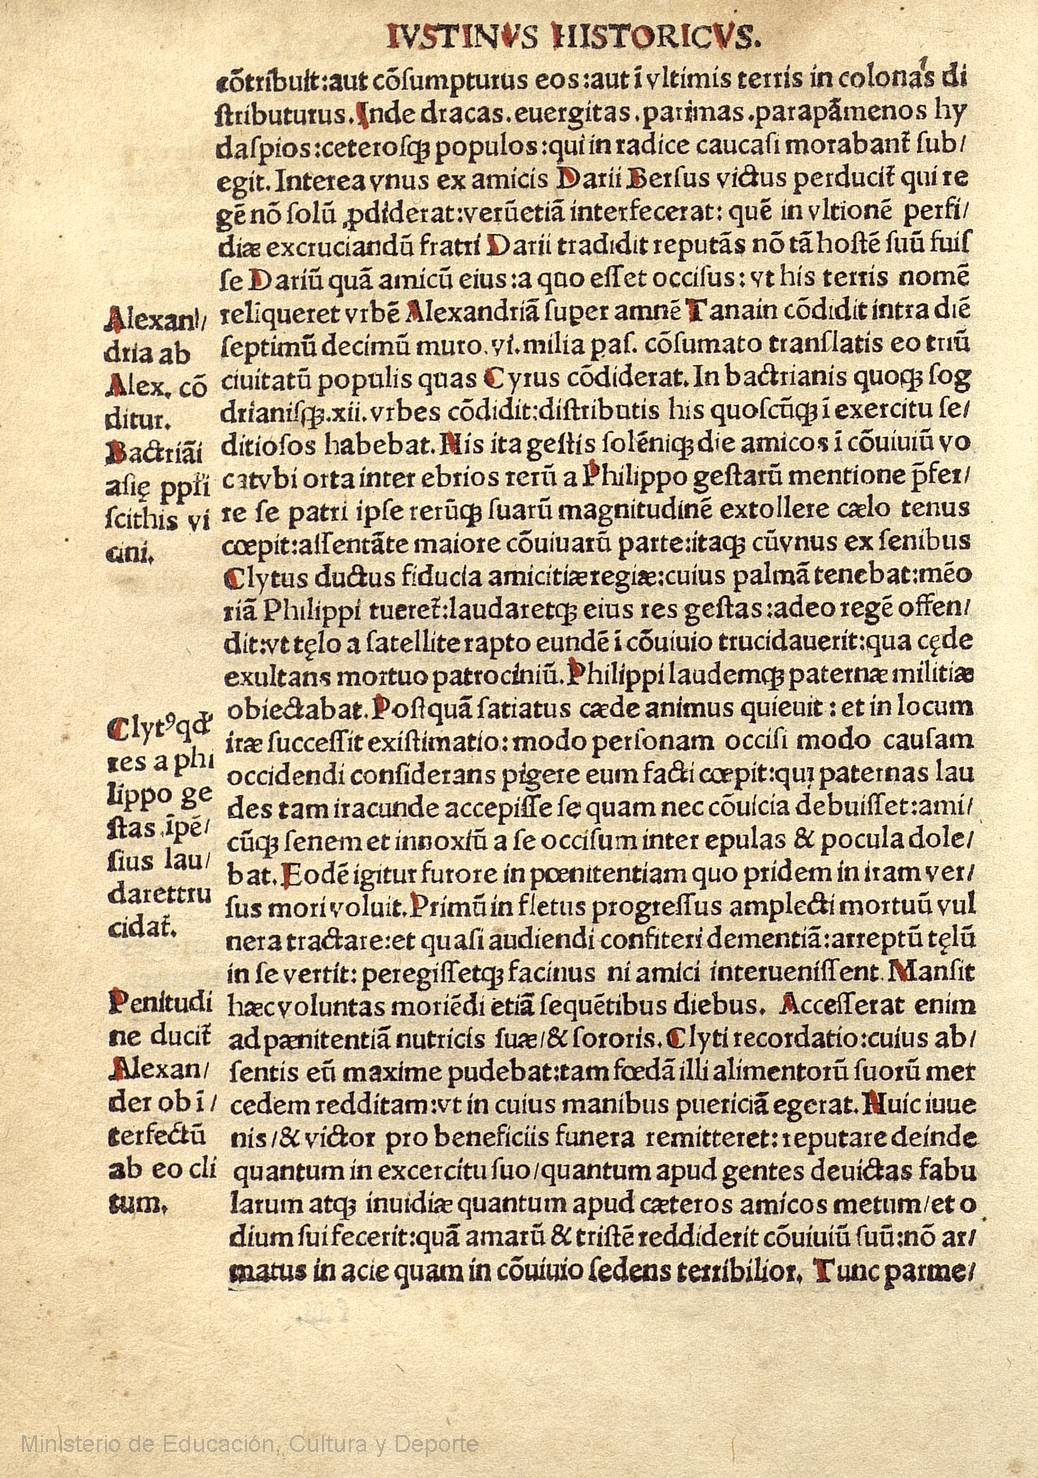 IVSTINVS HISTORICVS.
cõtribuit:aut cõſumpturus eos:aut ĩ vltimis terris in colonas di
ſtributurus.Inde dracas.euergitas.parimas.parapãmenos hy
daſpios:ceteroſqꝫ populos:qui in radice caucaſi morabant᷑ ſub/
egit.Interea vnus ex amicis Darii Berſus victus perducit᷑ qui re
gẽ nõ ſolũ ꝓdiderat:verũetiã interfecerat: quẽ in vltionẽ perfi/
diæ excruciandũ fratri Darii tradidit reputãs nõ tã hoſtẽ ſuũ fuiſ
ſe Dariũ quã amicũ eius:a quo eſſet occiſus: vt his terris nomẽ
reliqueret vrbẽ Alexandriã ſuper amnẽ Tanain cõdidit intra diẽ
ſeptimũ decimũ muro.vi.milia paſ. cõſumato tranſlatis eo triũ
ciuitatũ populis quas Cyrus cõdiderat.In bactrianis quoqꝫ ſog
drianiſqꝫ.xii.vrbes cõdidit:diſtributis his quoſcũqꝫ ĩ exercitu ſe/
ditioſos habebat.His ita geſtis ſolẽniqꝫ die amicos ĩ cõuiuiũ vo
cat vbi orta inter ebrios rerũ a Philippo geſtarũ mentione p̃fer/
re ſe patri ipſe rerũqꝫ ſuarũ magnitudinẽ extollere cælo tenus
cœpit:aſſentãte maiore cõuiuarũ parte:itaqꝫ cũvnus ex ſenibus
Clytus ductus fiducia amicitiæ regiæ:cuius palmã tenebat:mẽo
riã Philippi tueret᷑:laudaretqꝫ eius res geſtas:adeo regẽ offen/
dit:vt tęlo a ſatellite rapto eundẽ ĩ cõuiuio trucidauerit:qua cęde
exultans mortuo patrociniũ.Philippi laudemqꝫ paternæ militiæ
obiectabat.Poſtquã ſatiatus cæde animus quieuit : et in locum
iræ ſucceſſit exiſtimatio: modo perſonam occiſi modo cauſam
occidendi conſiderans pigere eum facti cœpit:qui paternas lau
des tam iracunde accepiſſe ſe quam nec cõuicia debuiſſet:ami/
cũqꝫ ſenem et innoxiũ a ſe occiſum inter epulas & pocula dole/
bat.Eodẽ igitur furore in pœnitentiam quo pridem in iram ver/
ſus mori voluit.Primũ in fletus progreſſus amplecti mortuũ vul
nera tractare:et quaſi audiendi confiteri dementiã:arreptũ tęlũ
in ſe vertit: peregiſſetqꝫ facinus ni amici interueniſſent.Manſit
hæc voluntas moriẽdi etiã ſequẽtibus diebus. Acceſſerat enim
ad pænitentiã nutricis ſuæ/& ſororis.Clyti recordatio:cuius ab/
ſentis eũ maxime pudebat:tam fœdã illi alimentorũ ſuorũ mer
cedem redditam:vt in cuius manibus puericiã egerat.Huic iuue
nis/& victor pro beneficiis funera remitteret: reputare deinde
quantum in excercitu ſuo/quantum apud gentes deuictas fabu
larum atqꝫ inuidiæ quantum apud cæteros amicos metum/et o
dium ſui fecerit:quã amarũ & triſtẽ reddiderit cõuiuiũ ſuũ:nõ ar/
matus in acie quam in cõuiuio ſedens terribilior. Tunc parme/
Alexan/
dria ab
Alex. cõ
ditur.
Bactriãi
aſię pp̃ſi
ſcithis vi
cini.
Clytꝰ qd̃
res a phi
lippo ge
ſtas ĩpẽ/
ſius lau/
daret tru
cidat᷑.
Penitudi
ne ducit᷑
Alexan/
der ob ĩ/
terfectũ
ab eo cli
tum.
Ministerio de Educación, Cultura y Deporte